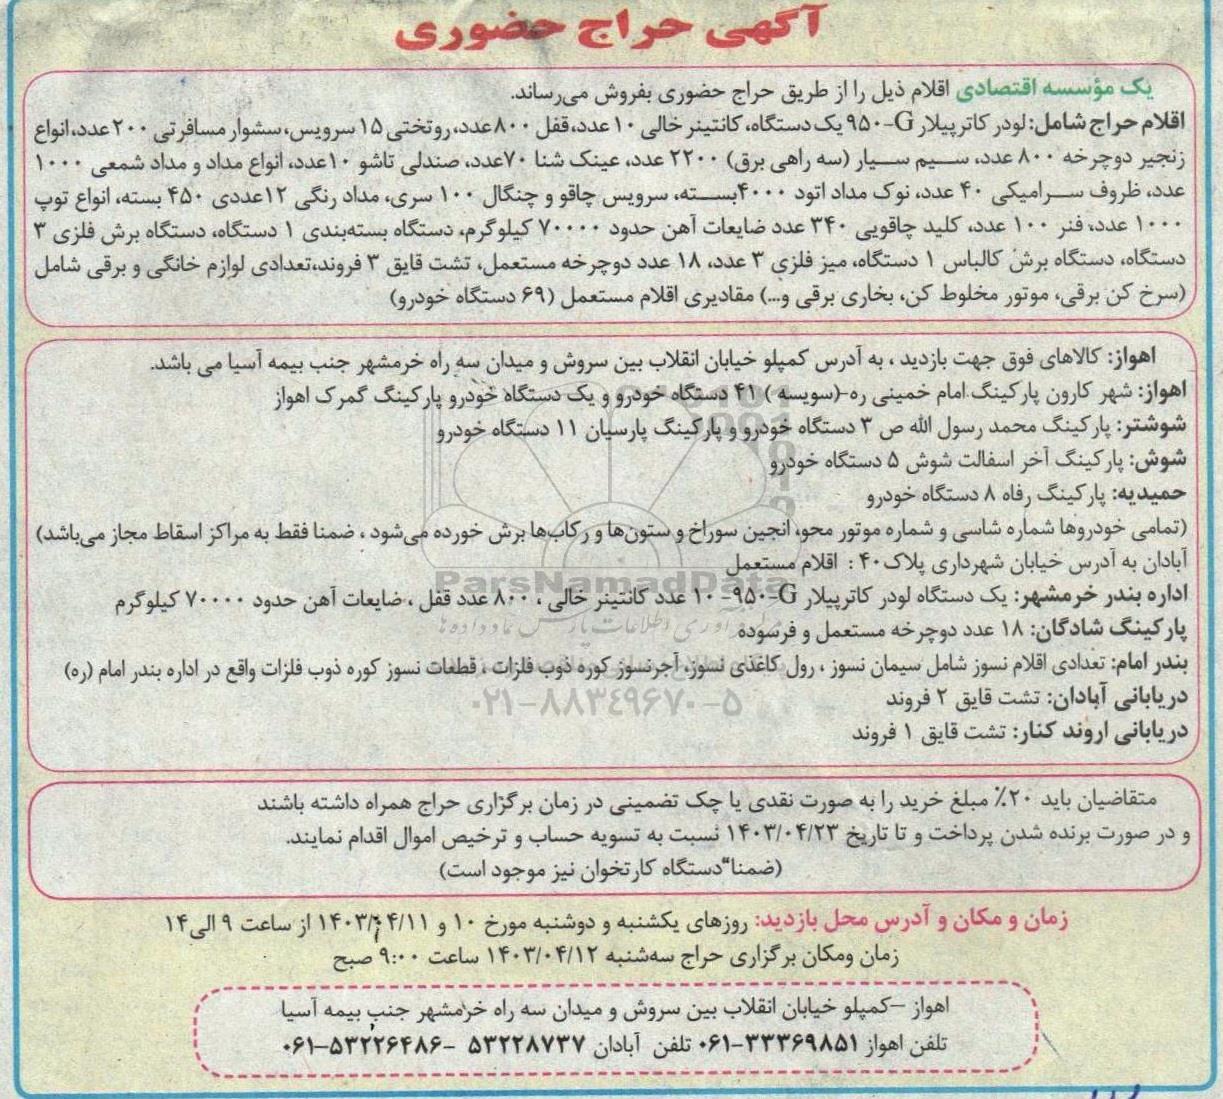 آگهی حراج حضوری
یک مؤسسه اقتصادی اقلام ذیل را از طریق حراج حضوری بفروش می‌رساند.
اقلام حراج شامل: لودر کاترپیلار G-۹۵۰ یک دستگاه، کانتینر خالی ۱۰ عدد، قفل ۸۰۰ عدد، روتختی ۱۵ سرویس، سشوار مسافرتی ۲۰۰ عدد، انواع
زنجیر دوچرخه ۸۰۰ عدد، سیم سیار (سه راهی برق) ۲۲۰۰ عدد، عینک شنا ۷۰عدد، صندلی تاشو ۱۰عدد، انواع مداد و مداد شمعی ۱۰۰۰
عدد، ظروف سرامیکی ۴۰ عدد، نوک مداد اتود ۴۰۰۰بسته، سرویس چاقو و چنگال ۱۰۰ سری، مداد رنگی ۱۲عددی ۴۵۰ بسته، انواع توپ
۱۰۰۰ عدد، فنر ۱۰۰ عدد، کلید چاقویی ۳۴۰ عدد ضایعات آهن حدود ۷۰۰۰۰ کیلوگرم، دستگاه بسته‌بندی ۱ دستگاه، دستگاه برش فلزی ۳
دستگاه، دستگاه برش کالباس ۱ دستگاه، میز فلزی ۳ عدد، ۱۸ عدد دوچرخه مستعمل، تشت قایق ۳ فروند، تعدادی لوازم خانگی و برقی شامل
(سرخ کن برقی، موتور مخلوط کن، بخاری برقی و...) مقادیری اقلام مستعمل (۶۹ دستگاه خودرو)
اهواز: کالاهای فوق جهت بازدید ، به آدرس کمپلو خیابان انقلاب بین سروش و میدان سه راه خرمشهر جنب بیمه آسیا می باشد.
اهواز: شهر کارون پارکینگ امام خمینی ره-(سویسه ) ۴۱ دستگاه خودرو و یک دستگاه خودرو پارکینگ گمرک اهواز
شوشتر: پارکینگ محمد رسول الله ص ۳ دستگاه خودرو و پارکینگ پارسیان ۱۱ دستگاه خودرو
شوش: پارکینگ آخر اسفالت شوش ۵ دستگاه خودرو
حمیدیه: پارکینگ رفاه ۸ دستگاه خودرو
(تمامی خودروها شماره شاسی و شماره موتور محو، انجین سوراخ و ستون‌ها و رکاب‌ها برش خورده می‌شود ، ضمنا فقط به مراکز اسقاط مجاز می‌باشد)
آبادان به آدرس خیابان شهرداری پلاک۴۰ : اقلام مستعمل
ParsNamadData
اداره بندر خرمشهر: یک دستگاه لودر کاترپیلار G-۹۵۰- ۱۰ عدد کانتینر خالی ، ۸۰۰ عدد قفل ، ضایعات آهن حدود ۷۰۰۰۰ کیلوگرم
پارکینگ شادگان: ۱۸ عدد دوچرخه مستعمل و فرسوده
بندر امام: تعدادی اقلام نسوز شامل سیمان نسوز ، رول کاغذی نسوز، آجرنسوز کوره ذوب فلزات ، قطعات نسوز کوره ذوب فلزات واقع در اداره بندر امام (ره)
دریابانی آبادان: تشت قایق ۲ فروند
۰۲۱-۸۸۳۴۹۶۷۰-۵
دریابانی اروند کنار: تشت قایق ۱ فروند
متقاضیان باید ۲۰٪ مبلغ خرید را به صورت نقدی یا چک تضمینی در زمان برگزاری حراج همراه داشته باشند
و در صورت برنده شدن پرداخت و تا تاریخ ۱۴۰۳/۰۴/۲۳ نسبت به تسویه حساب و ترخیص اموال اقدام نمایند.
(ضمنا"دستگاه کارتخوان نیز موجود است)
زمان و مکان و آدرس محل بازدید: روزهای یکشنبه و دوشنبه مورخ ۱۰ و ۱۴۰۳/۰۴/۱۱ از ساعت ۹ الی۱۴
زمان ومکان برگزاری حراج سه‌شنبه ۱۴۰۳/۰۴/۱۲ ساعت ۹:۰۰ صبح
اهواز –کمپلو خیابان انقلاب بین سروش و میدان سه راه خرمشهر جنب بیمه آسیا
تلفن اهواز ۳۳۳۶۹۸۵۱-۰۶۱ تلفن آبادان ۵۳۲۲۸۷۳۷ -۵۳۲۲۶۴۸۶-۰۶۱